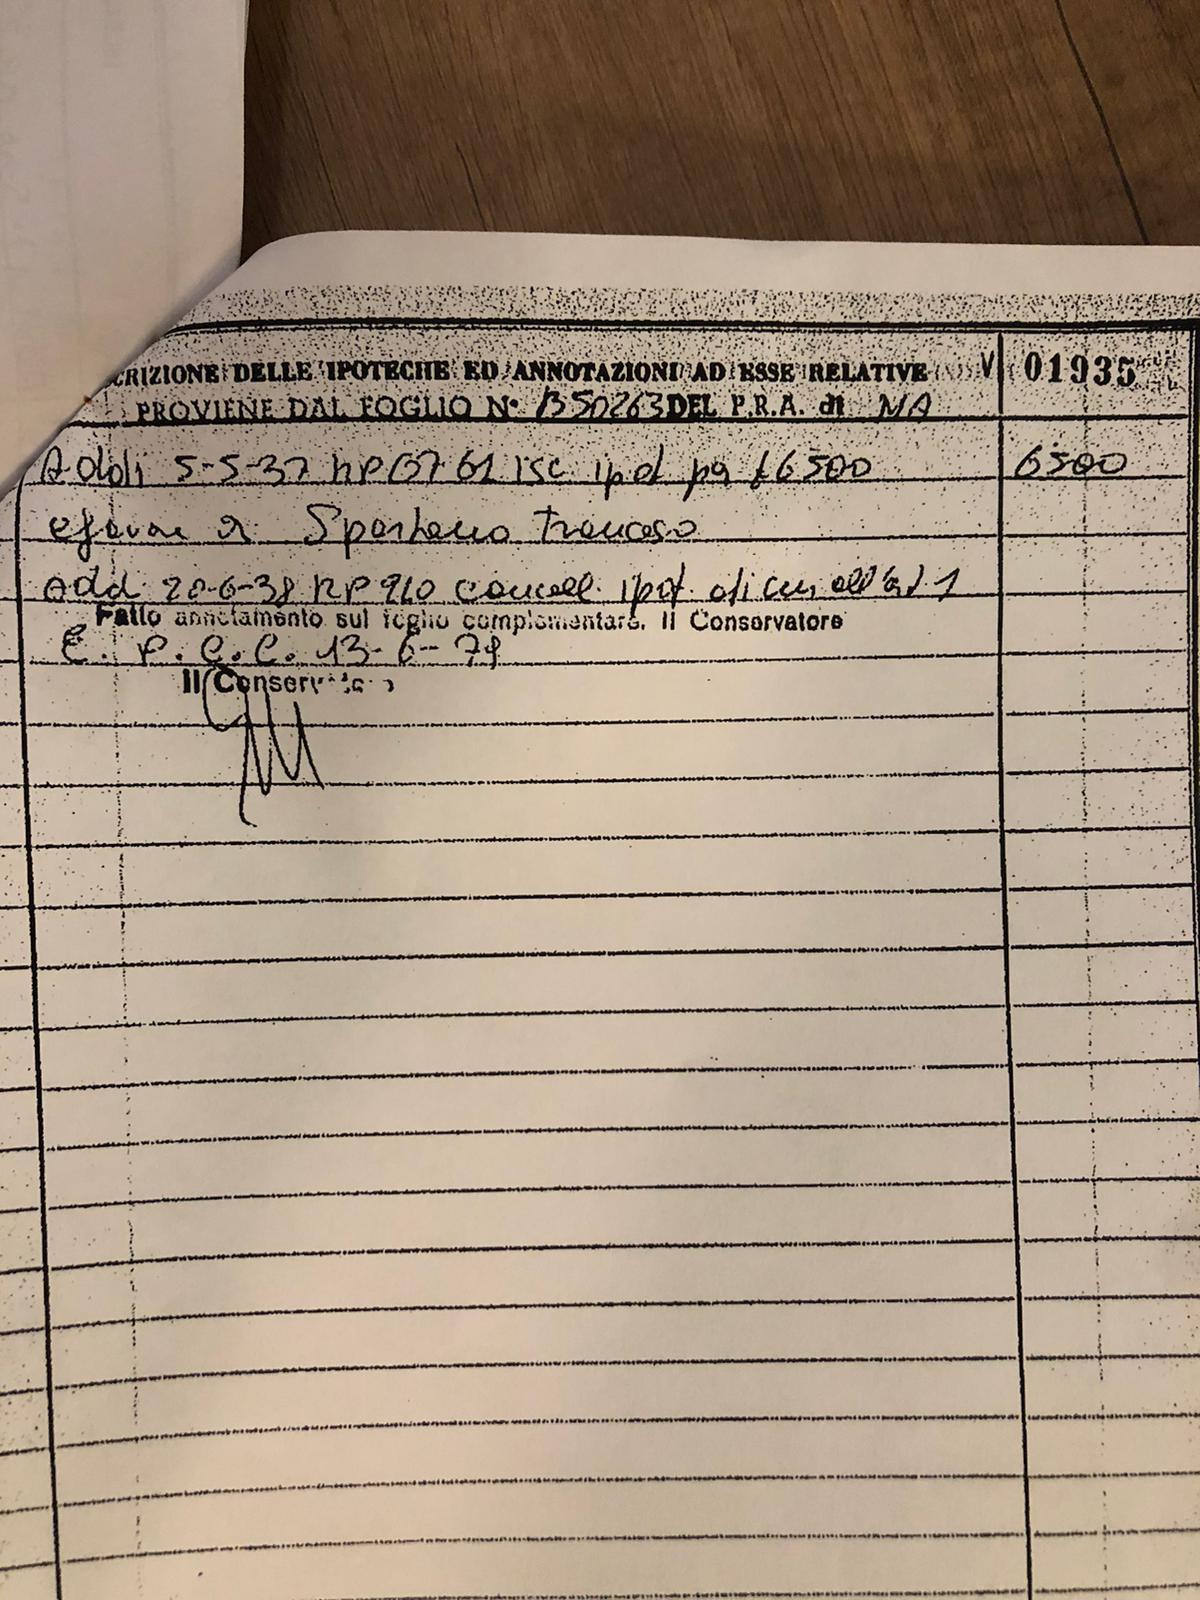 CRIZIONE DELLE IPOTECHE ED ANNOTAZIONI AD ESSE RELATIVE V 01935
PROVIENE DAL FOGLIO N° 1350263 DEL P.R.A. di NA
Addi 5-5-37 RP 6761 isc ipot pg £6500 6500
a Francesco
Add 20-6-38 RP 910 cancell. ipot. di cui all'art 1
Fatto annotamento sul foglio complementare. Il Conservatore
E. P. C. C. 13-6-79
Il Conservatore